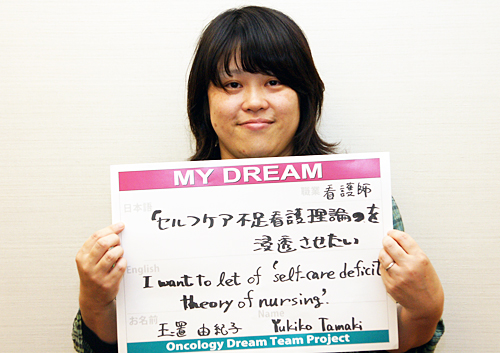 MY DREAM
職業 看護師
日本語
「セルフケア不足看護理論」を
浸透させたい
English
I want to let of 'self-care deficit
theory of nursing'.
お名前 Name
玉置 由紀子 Yukiko Tamaki
Oncology Dream Team Project